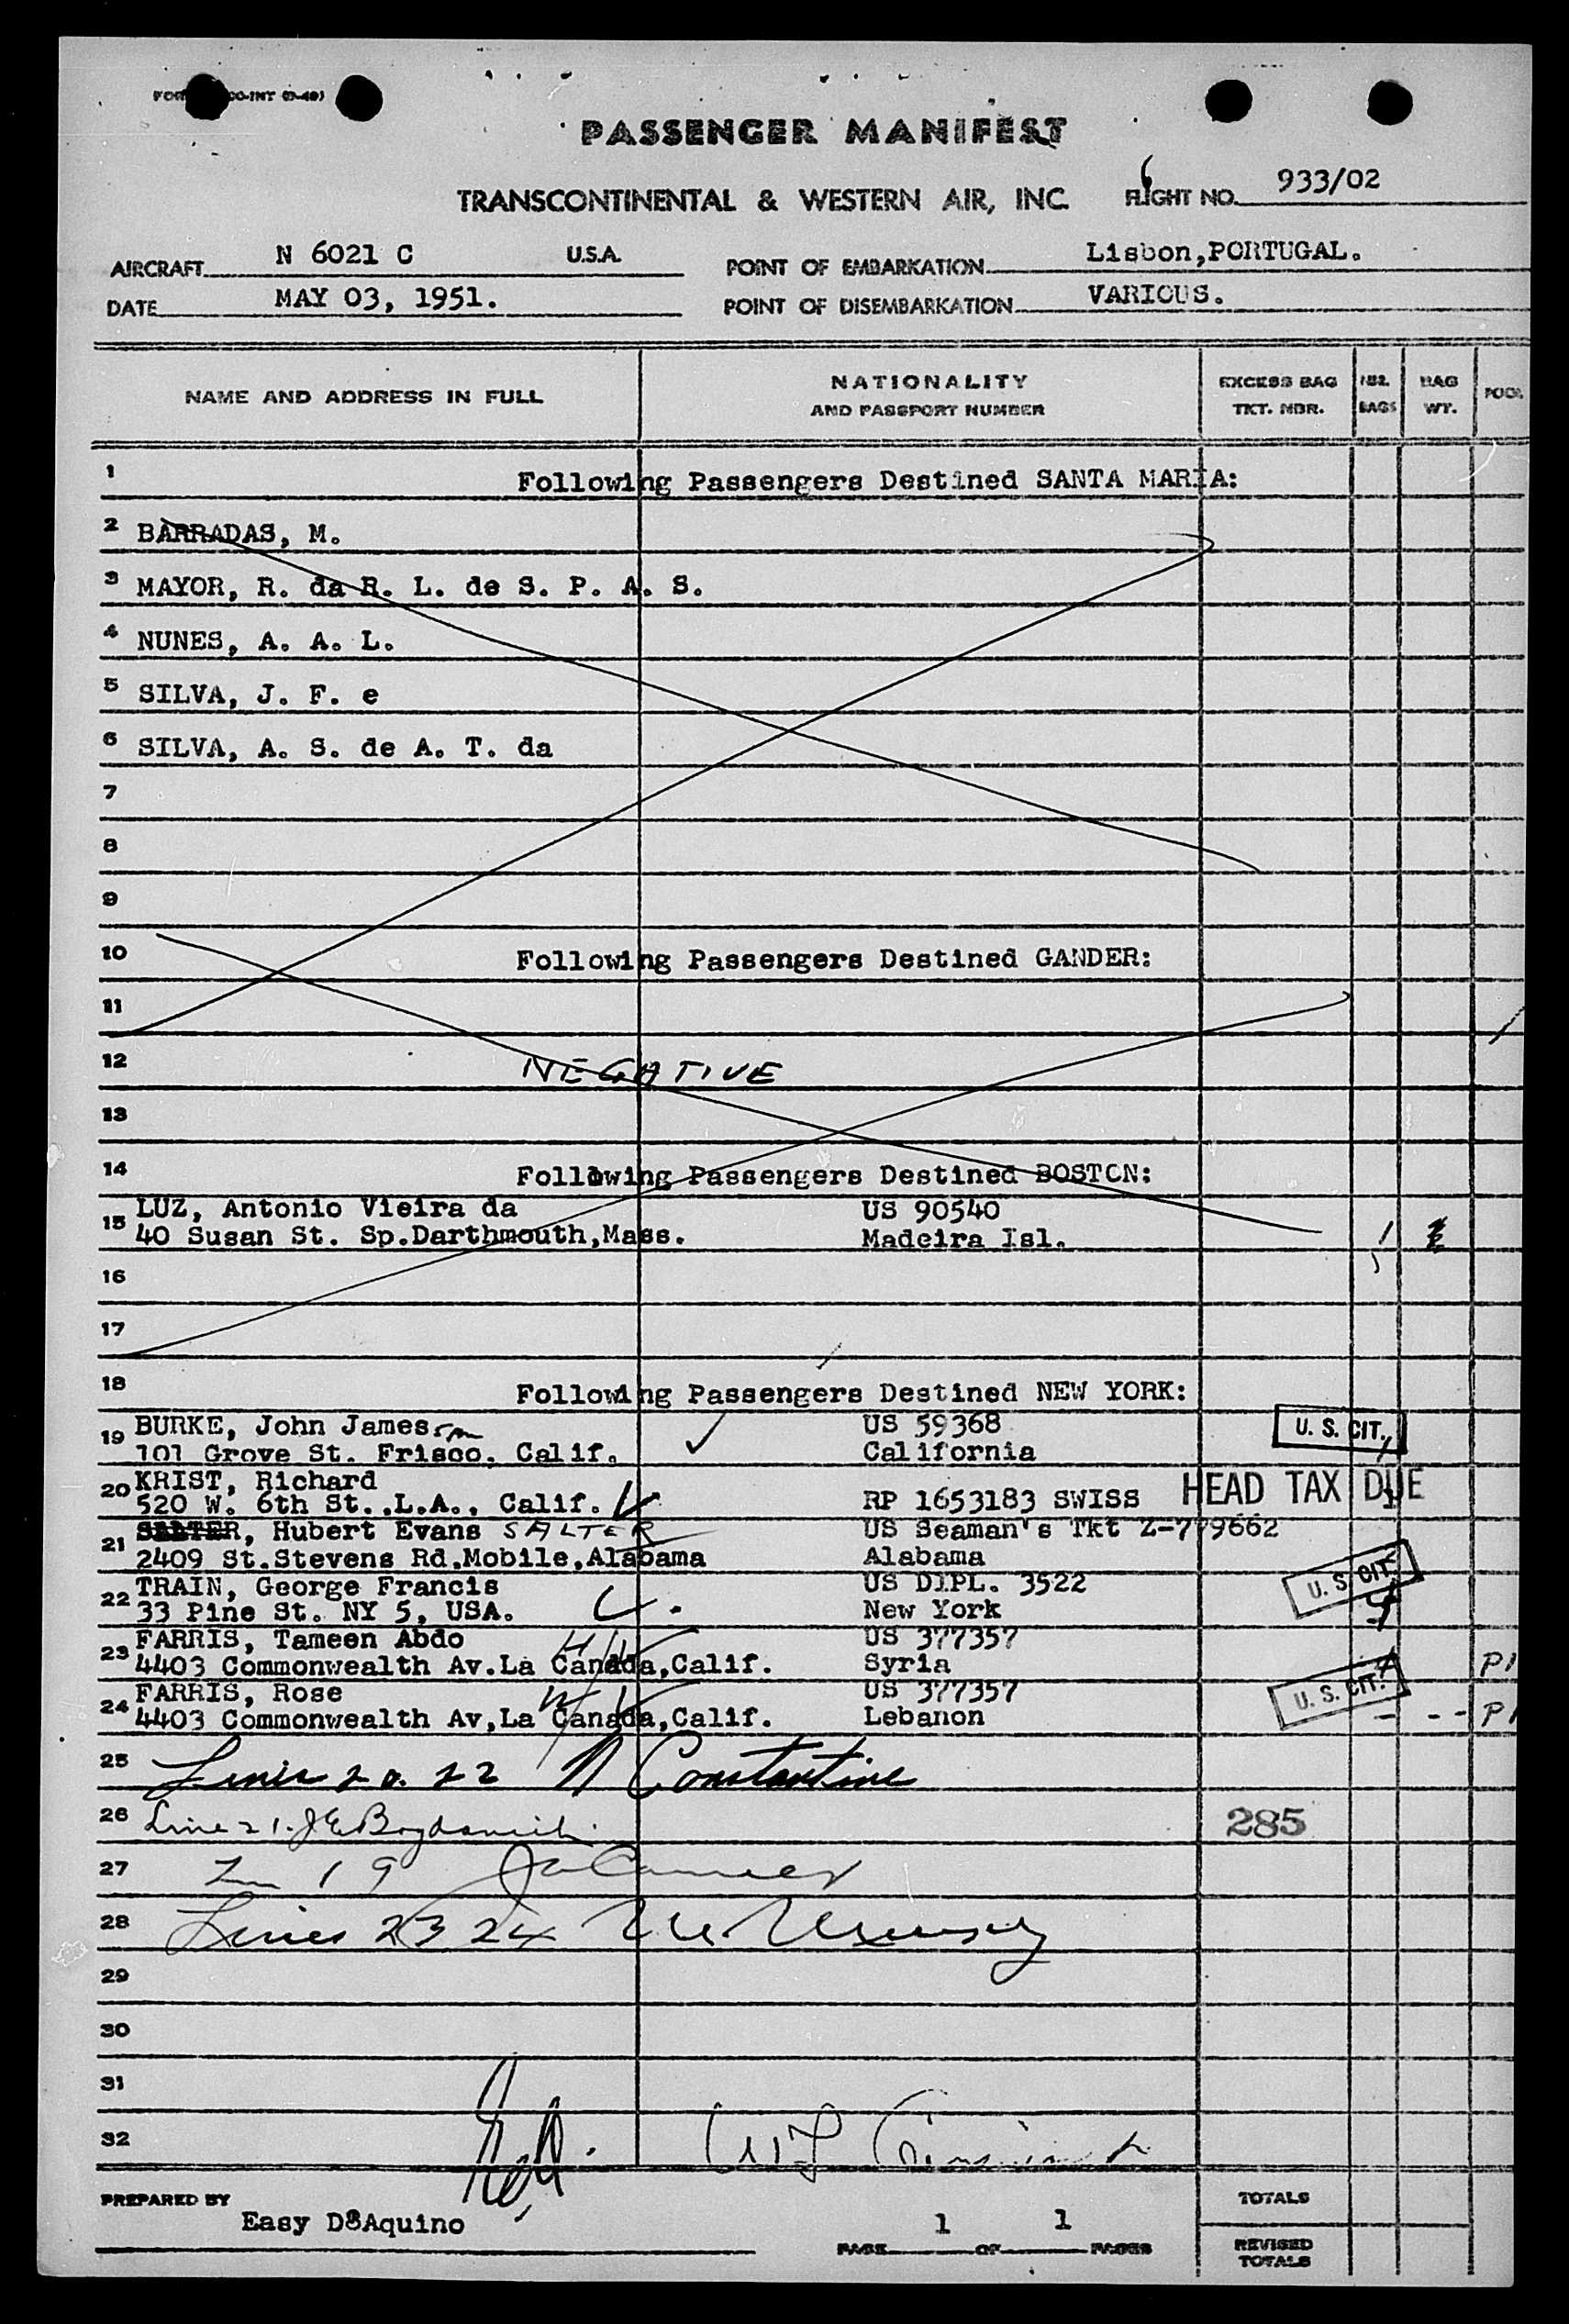 PASSENGER MANIFEST
TRANSCONTINENTAL & WESTERN AIR, INC. FLIGHT NO. 933/02
AIRCRAFT N 6021 C U.S.A. POINT OF EMBARKATION Lisbon,PORTUGAL.
DATE MAY 03, 1951. POINT OF DISEMBARKATION VARIOUS.
NAME AND ADDRESS IN FULL
NATIONALITY
AND PASSPORT NUMBER
EXCESS BAG
TKT. NBR.
BAGS
BAG
WT.
1 Following Passengers Destined SANTA MARIA:
2 BARRADAS, M.
3 MAYOR, R. da R. L. de S. P. A. S.
4 NUNES, A. A. L.
5 SILVA, J. F. e
6 SILVA, A. S. de A. T. da
7
8
9
10 Following Passengers Destined GANDER:
11
12 NEGATIVE
13
14 Following Passengers Destined BOSTON:
15 LUZ, Antonio Vieira da US 90540
40 Susan St. Sp.Darthmouth,Mass. Madeira Isl.
16
17
18 Following Passengers Destined NEW YORK:
19 BURKE, John James US 59368 U. S. CIT.
101 Grove St. Frisco, Calif. California
20 KRIST, Richard HEAD TAX DUE
520 W. 6th St.,L.A., Calif. RP 1653183 SWISS
21 SALTER, Hubert Evans SALTER US Seaman's Tkt Z-779662
2409 St.Stevens Rd,Mobile,Alabama Alabama
22 TRAIN, George Francis US DIPL. 3522 U. S. CIT.
33 Pine St. NY 5, USA. New York
23 FARRIS, Tameen Abdo US 377357
4403 Commonwealth Av.La Canada,Calif. Syria
24 FARRIS, Rose US 377357 U. S. CIT.
4403 Commonwealth Av,La Canada,Calif. Lebanon
25 Lines 20. 22 Constantine
26 Line 21. 285
27 19
28 Lines 23 24
29
30
31
32
PREPARED BY TOTALS
Easy D'Aquino PAGE 1 OF 1 PAGES
REVISED
TOTALS